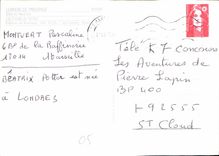 MONTVERT Pascaline
6 Bd de la Raffinerie
13014 Marseille
BÉATRIX Potter est née
à LONDRES
Télé K7 Concours
Les Aventures de
Pierre Lapin
BP 400
92555
ST Cloud
05